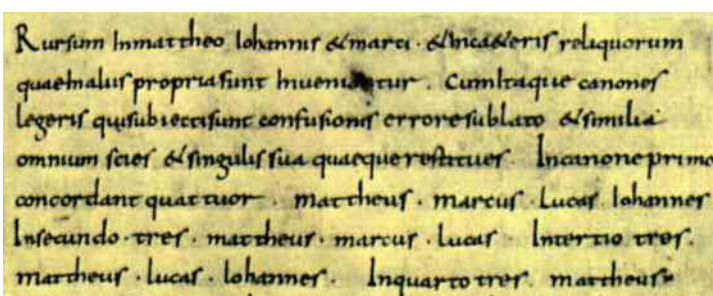 Rursum Inmattheo Iohannis &marci · &Inca&eris reliquorum
quaeInaliis propria sunt Inueniantur . CumItaque canones
legeris qui subiecti sunt confusionis errore sublato &similia
omnium scies &singulis sua quaeque restitues . Incanone primo
concordant quattuor . mattheus . marcus . Lucas Iohannes
Insecundo . tres . mattheus . marcus . Lucas . Intertio tres .
mattheus . lucas . Iohannes . Inquarto tres . mattheus